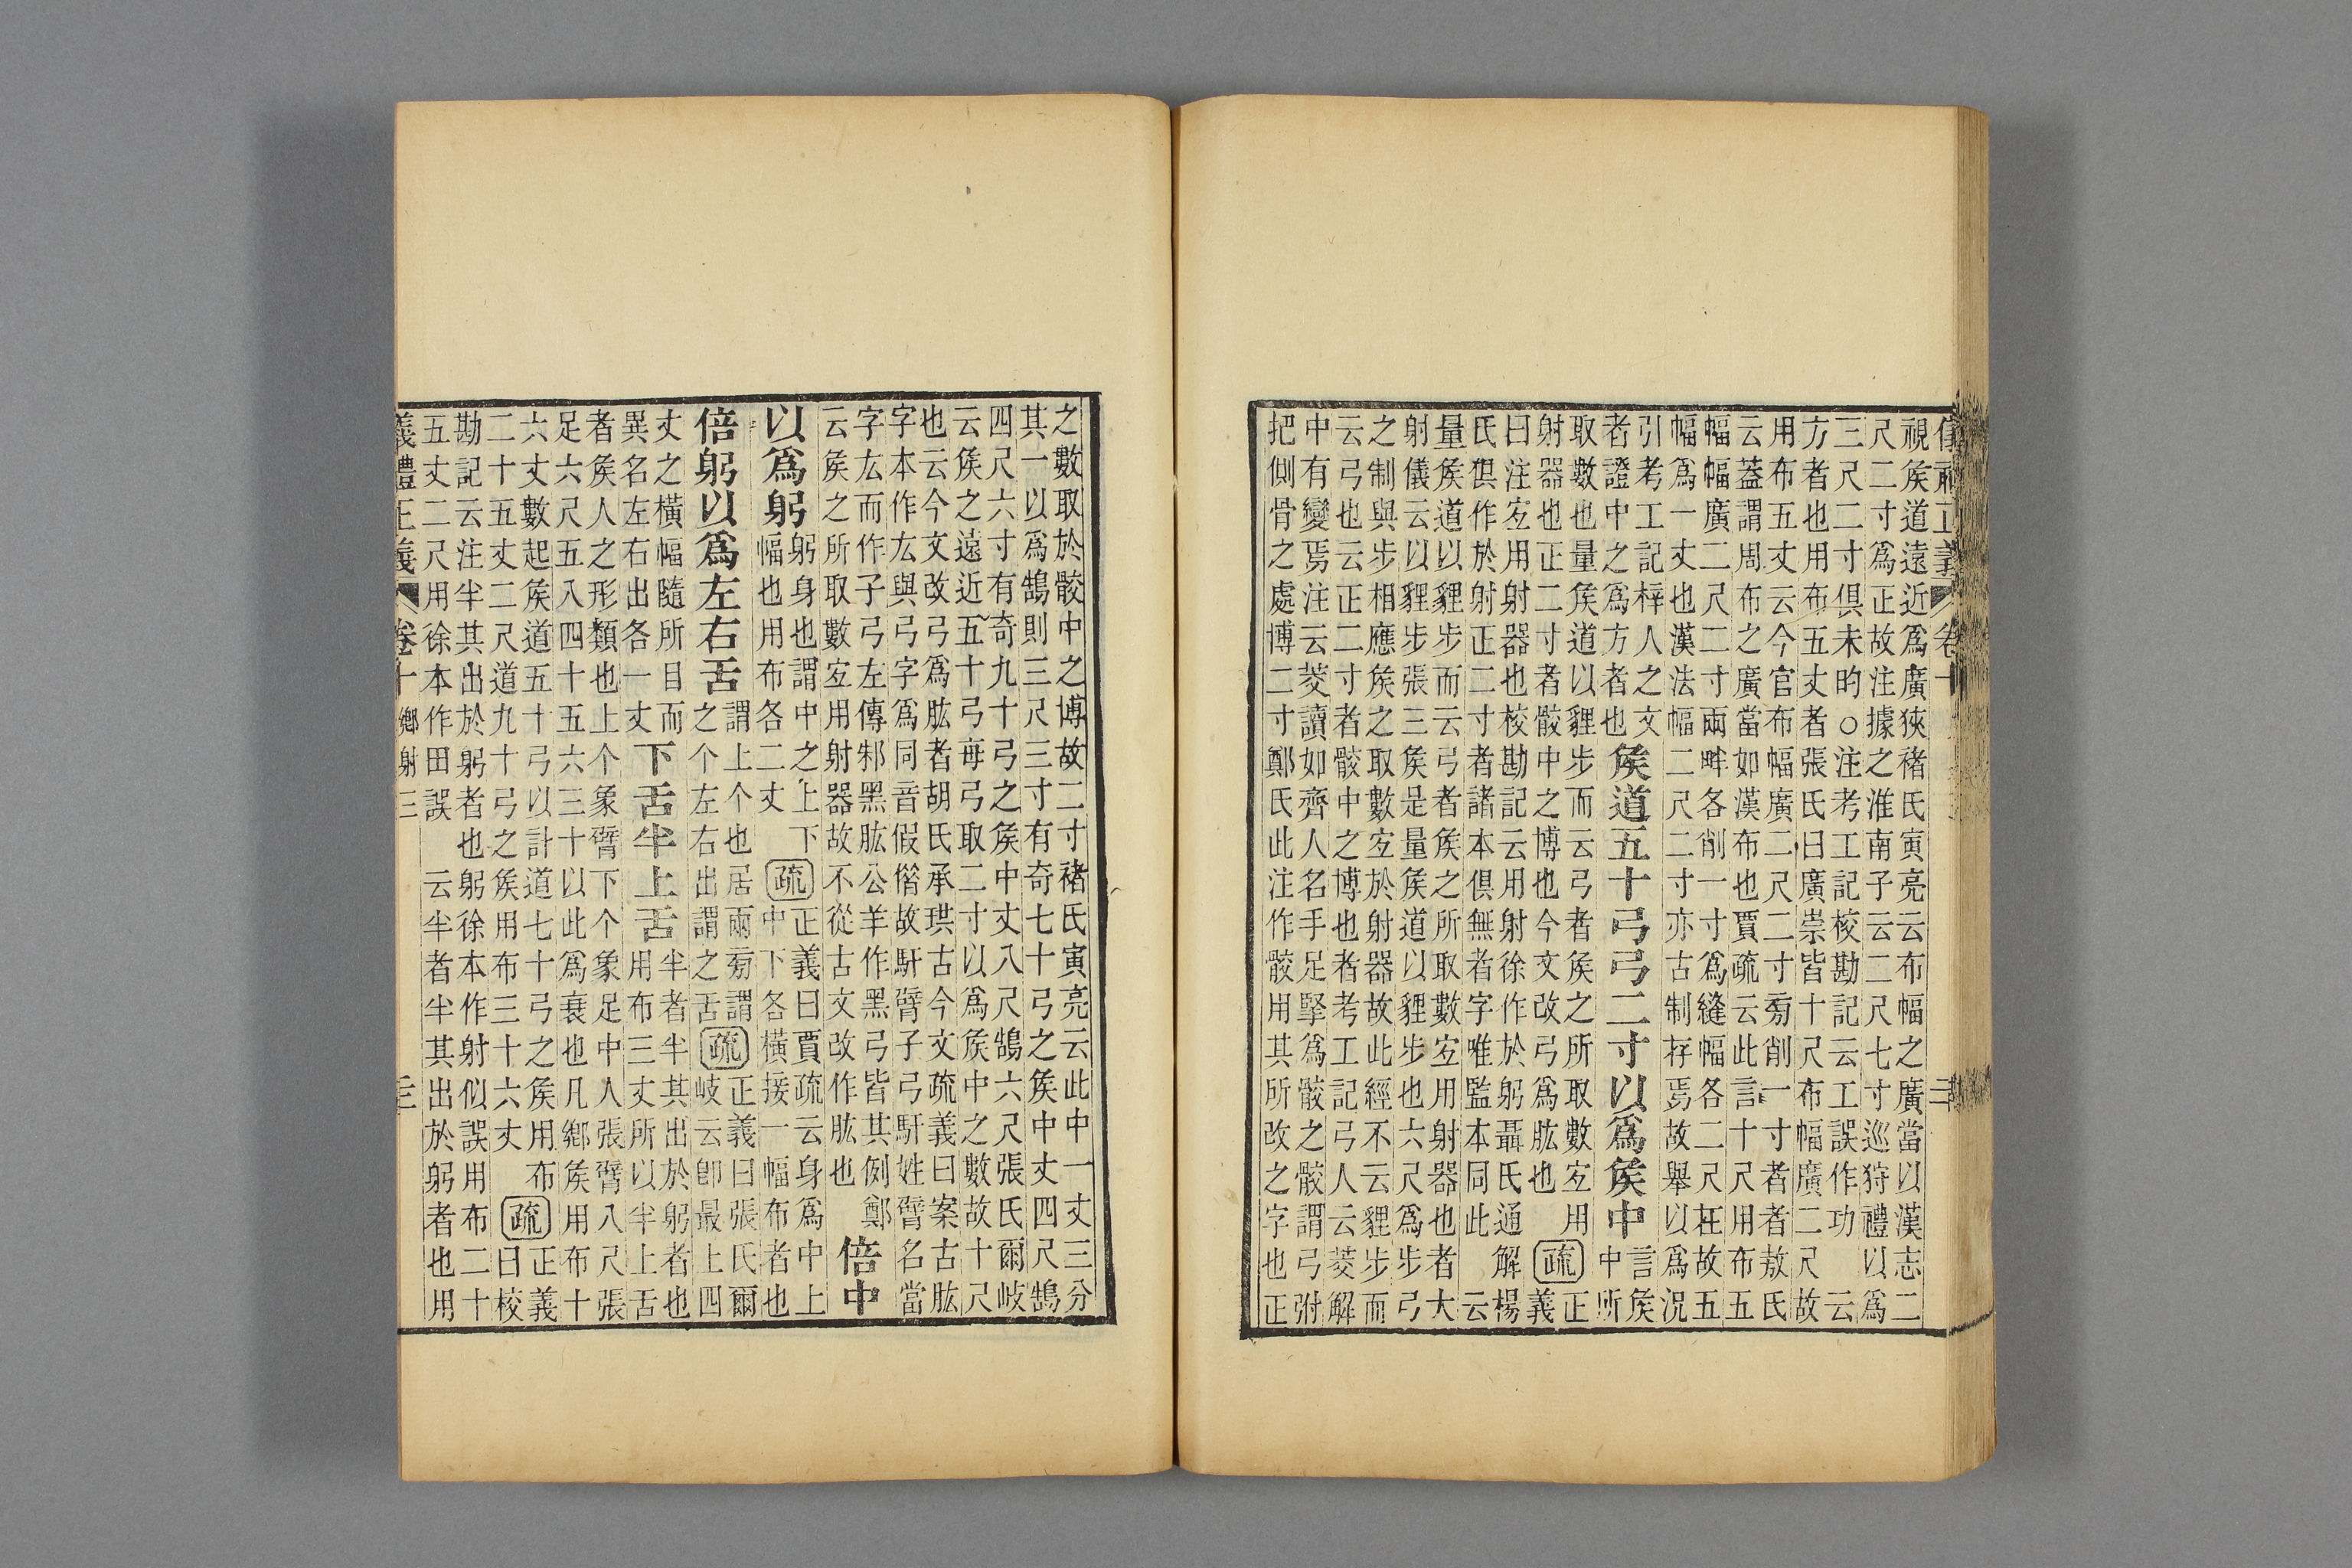 視矦道遠近爲廣狹褚氏寅亮云布幅之廣當以漢志二
尺二寸爲正故注據之淮南子云二尺七寸巡狩禮以爲
三尺二寸俱未昀○注考工記校勘記云工誤作功 云
方者也用布五丈者張氏曰廣崇皆十尺布幅廣二尺故
用布五丈云今官布幅廣二尺二寸㫄削一寸者者敖氏
云蓋謂周布之廣當如漢布也賈疏云此言十尺用布五
幅幅廣二尺二寸兩畔各削一寸爲縫幅各二尺在故五
幅爲一丈也漢法幅二尺二寸亦古制存焉故舉以爲況
引考工記梓人之文
者證中之爲方者也
矦道五十弓弓二寸以爲矦中
言矦
中所
取數也量矦道以貍步而云弓者矦之所取數宐用
射器也正二寸者骹中之博也今文改弓爲肱也
疏
正
義
曰注宐用射器也校勘記云用射徐作於躬聶氏通解楊
氏俱作於射正二寸者諸本俱無者字唯監本同此 云
量矦道以貍步而云弓者矦之所取數宐用射器也者大
射儀云以貍步張三矦是量矦道以貍步也六尺爲步弓
之制與步相應矦之取數宐於射器故此經不云貍步而
云弓也云正二寸者骹中之博也者考工記弓人云菱解
中有變焉注云菱讀如齊人名手足掔爲骹之骹謂弓弣
把側骨之處博二寸鄭氏此注作骹用其所改之字也正
之數取於骹中之博故二寸褚氏寅亮云此中一丈三分
其一以爲鵠則三尺三寸有奇七十弓之矦中丈四尺鵠
四尺六寸有奇九十弓之矦中丈八尺鵠六尺張氏爾岐
云矦之遠近五十弓每弓取二寸以爲矦中之數故十尺
也云今文改弓爲肱者胡氏承珙古今文疏義曰案古肱
字本作厷與弓字爲同音假偕故馯臂子弓馯姓臂名當
字厷而作子弓左傳邾黑肱公羊作黑弓皆其例鄭
云矦之所取數宐用射器故不從古文改作肱也
倍中
以爲躬
躬身也謂中之上下
幅也用布各二丈
疏
正義曰賈疏云身爲中上
中下各橫接一幅布者也
倍躬以爲左右舌
謂上个也居兩㫄謂
之个左右出謂之舌
疏
正義曰張氏爾
岐云卽最上四
丈之橫幅隨所目而
異名左右出各一丈
下舌半上舌
半者半其出於躬者也
用布三丈所以半上舌
者矦人之形類也上个象臂下个象足中人張臂八尺張
足六尺五八四十五六三十以此爲衰也凡鄉矦用布十
六丈數起矦道五十弓以計道七十弓之矦用布
二十五丈二尺道九十弓之矦用布三十六丈
疏
正義
曰校
勘記云注半其出於躬者也躬徐本作射似誤用布二十
五丈二尺用徐本作田誤 云半者半其出於躬者也用
義禮正義 卷十 鄉射三 三